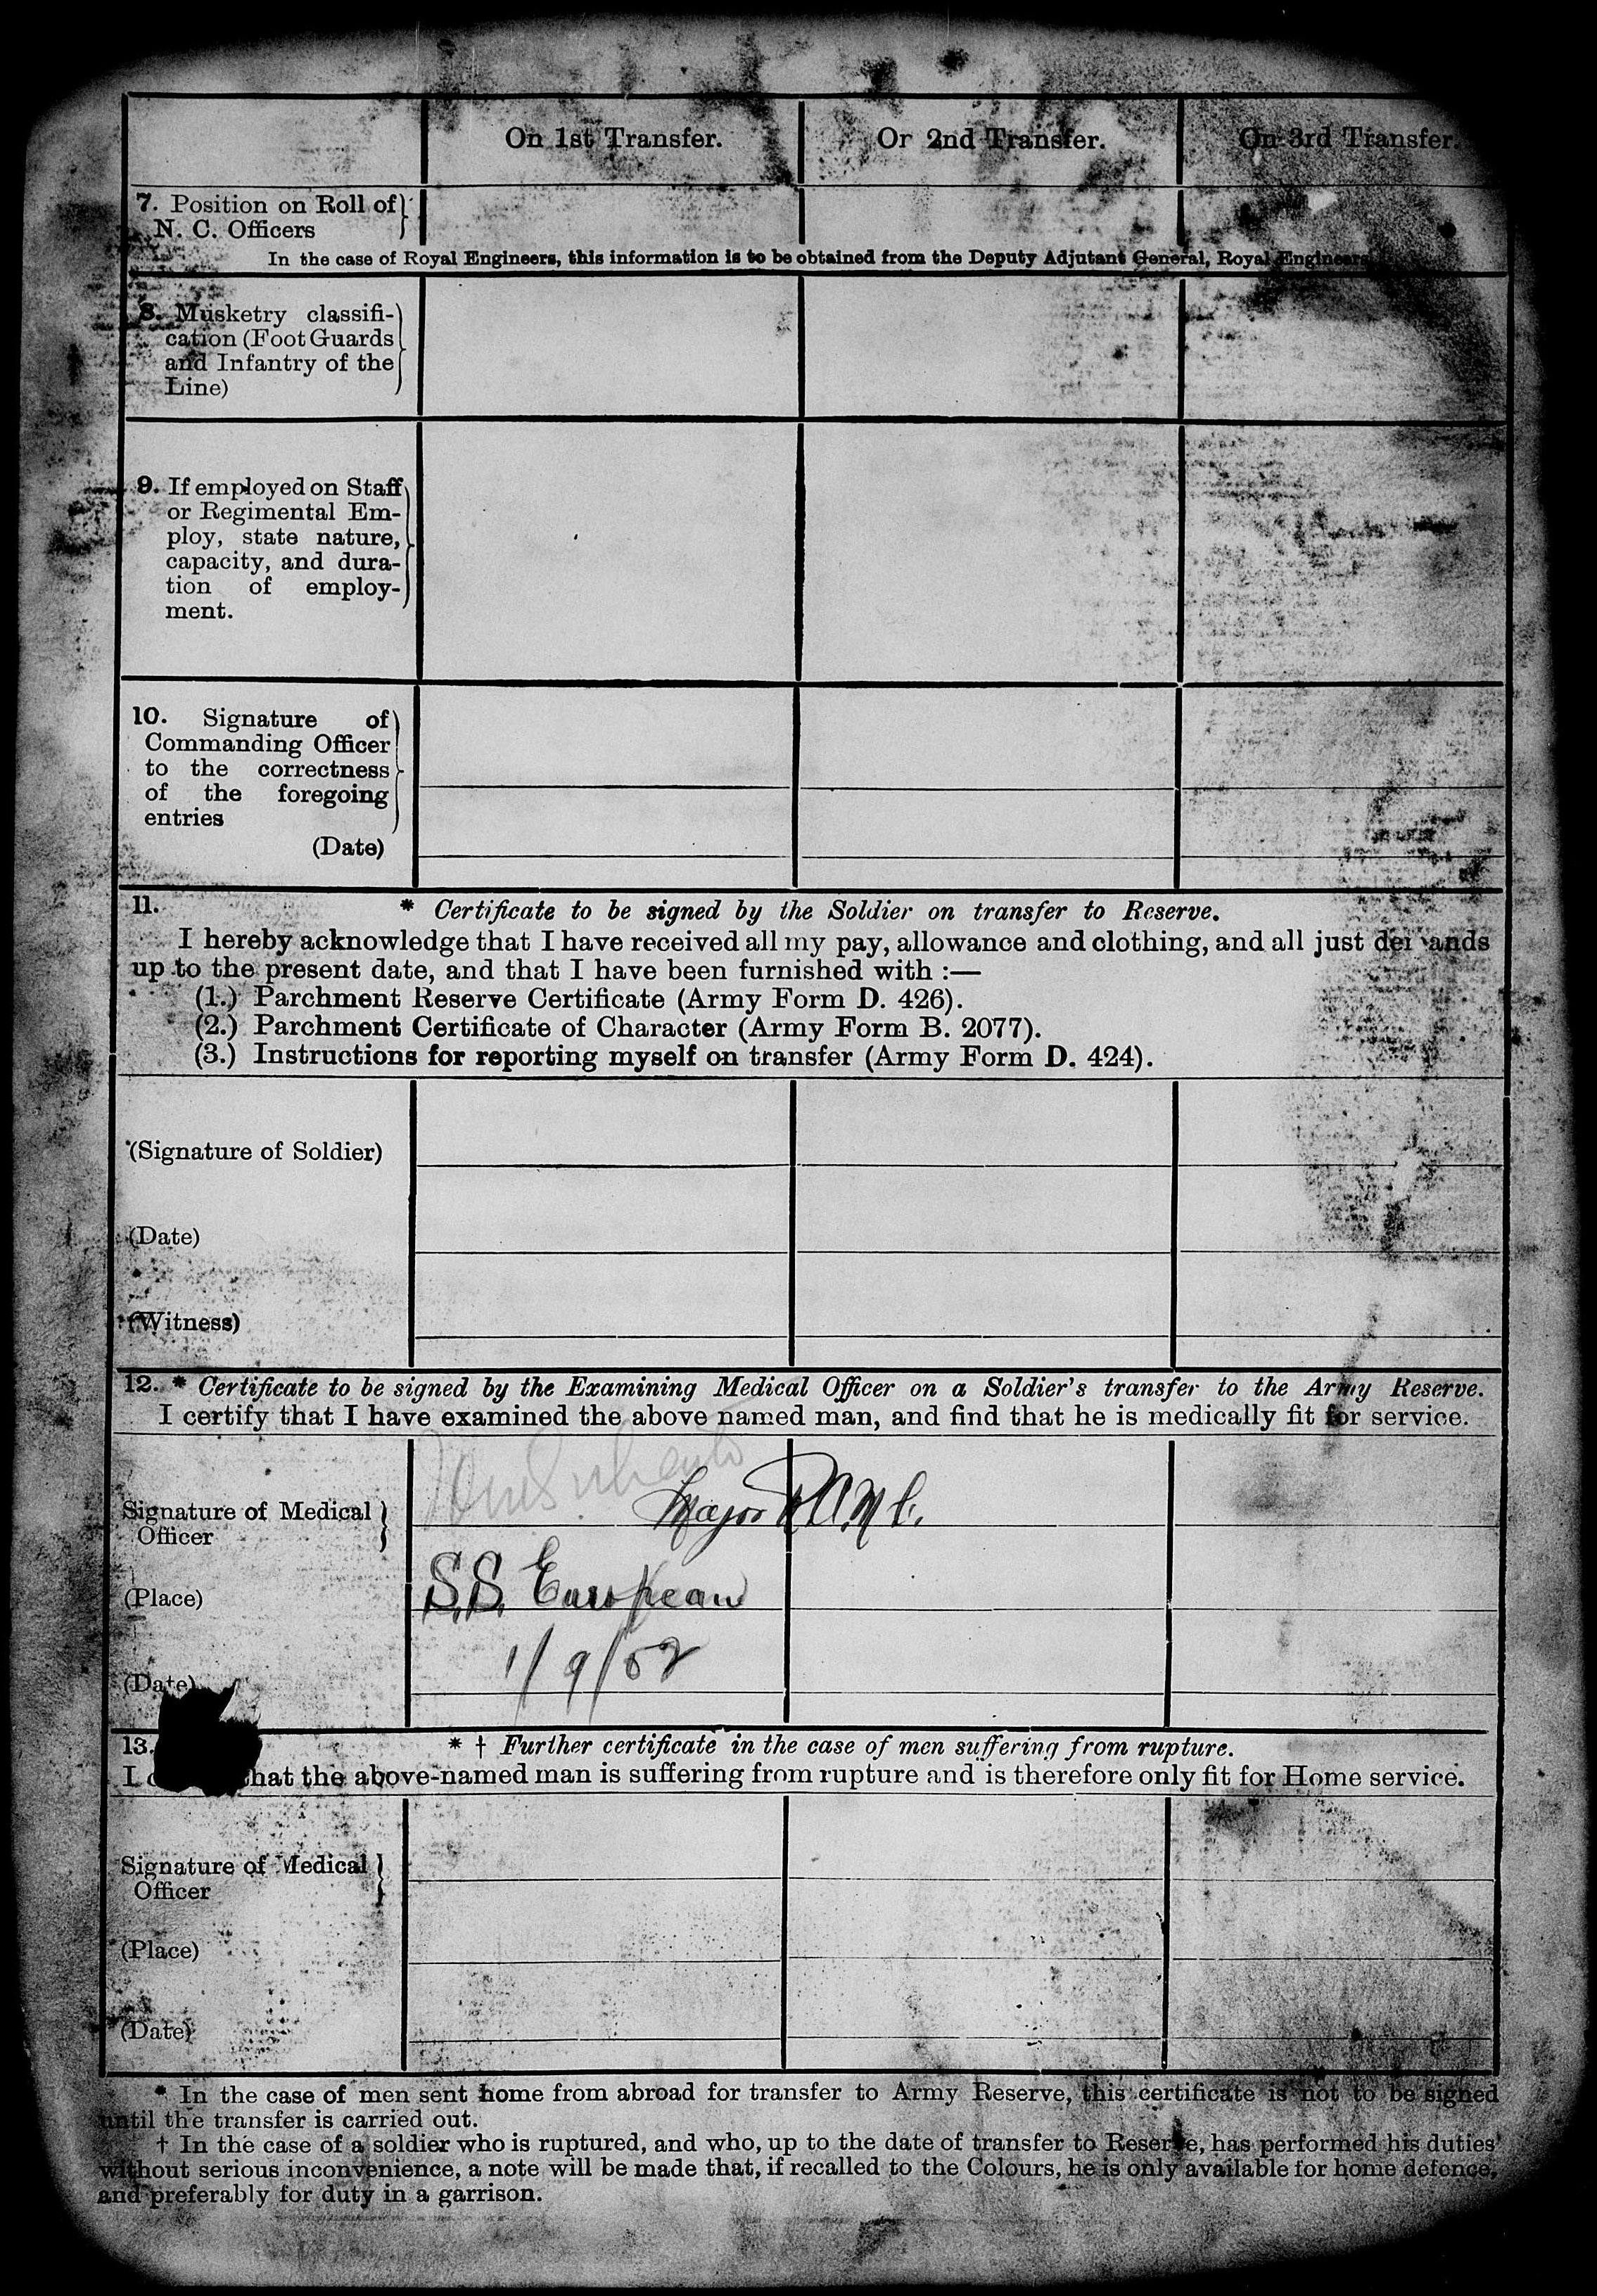 On 1st Transfer. Or 2nd Transfer. On 3rd Transfer.
7. Position on Roll of
N. C. Officers
In the case of Royal Engineers, this information is to be obtained from the Deputy Adjutant General, Royal Engineers
8. Musketry classifi-
cation (Foot Guards
and Infantry of the
Line)
9. If employed on Staff
or Regimental Em-
ploy, state nature,
capacity, and dura-
tion of employ-
ment.
10. Signature of
Commanding Officer
to the correctness
of the foregoing
entries
(Date)
11. * Certificate to be signed by the Soldier on transfer to Reserve.
I hereby acknowledge that I have received all my pay, allowance and clothing, and all just demands
up to the present date, and that I have been furnished with :—
(1.) Parchment Reserve Certificate (Army Form D. 426).
(2.) Parchment Certificate of Character (Army Form B. 2077).
(3.) Instructions for reporting myself on transfer (Army Form D. 424).
(Signature of Soldier)
(Date)
(Witness)
12. * Certificate to be signed by the Examining Medical Officer on a Soldier's transfer to the Army Reserve.
I certify that I have examined the above named man, and find that he is medically fit for service.
Major R.A.M.C.
Signature of Medical
Officer
(Place) S.S. European
(Date) 1/9/02
13. * † Further certificate in the case of men suffering from rupture.
I that the above-named man is suffering from rupture and is therefore only fit for Home service.
Signature of Medical
Officer
(Place)
(Date)
* In the case of men sent home from abroad for transfer to Army Reserve, this certificate is not to be signed
until the transfer is carried out.
† In the case of a soldier who is ruptured, and who, up to the date of transfer to Reserve, has performed his duties
without serious inconvenience, a note will be made that, if recalled to the Colours, he is only available for home defence,
and preferably for duty in a garrison.